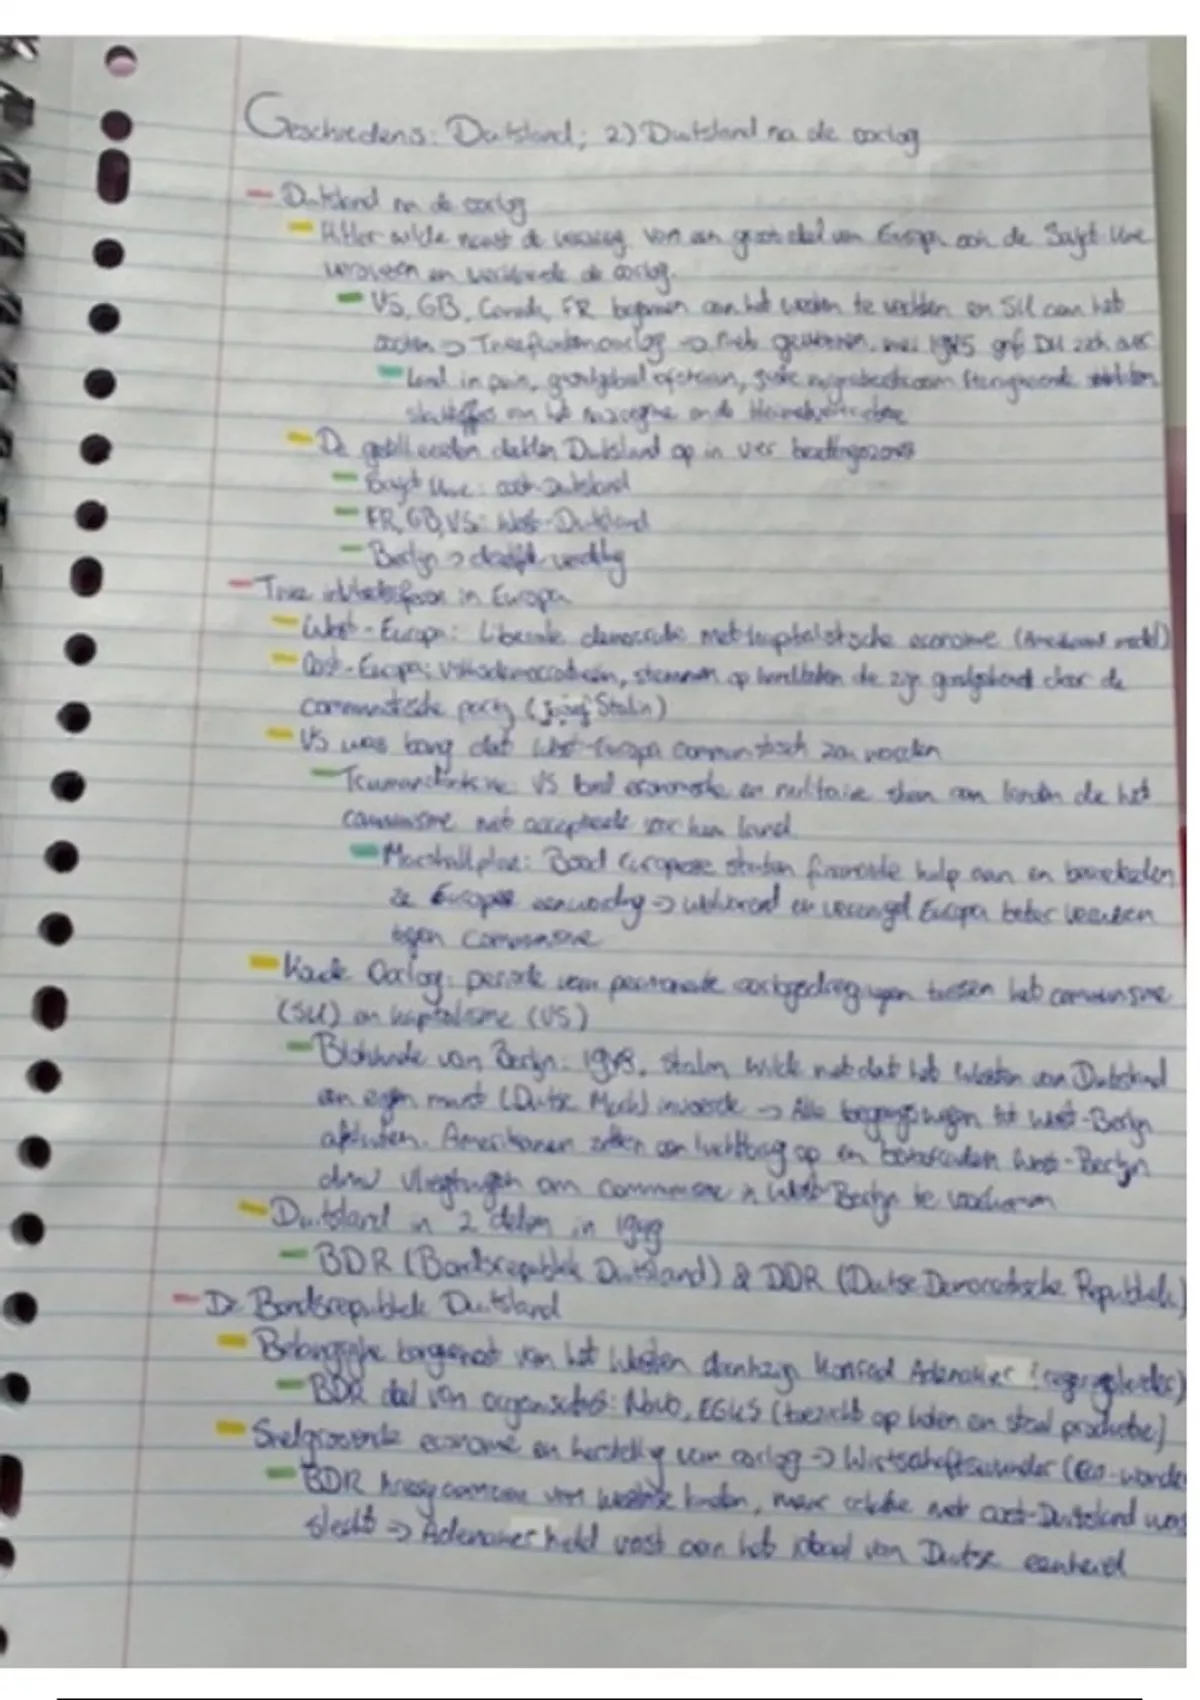 Geschiedenis: Duitsland; 2) Duitsland na de oorlog
- Duitsland na de oorlog
- Hitler wilde naast de van een groot deel van Europa ook de Sovjet Unie
veroveren en de oorlog.
- VS, GB, Canada, FR begonnen aan het westen te vechten en SU aan het
oosten → Tweefrontenoorlog → niet gewonnen. mei 1945 gaf DU zich over
- Land in puin, grootgebied
slachtoffers van het
- De geallieerden deelden Duitsland op in vier bezettingszones
- Sovjet Unie: oost-Duitsland
- FR, GB, VS: West-Duitsland
- Berlijn →
- Twee invloedsferen in Europa
- West-Europa: Liberale democratie met kapitalistische economie (Amerikaans model)
- Oost-Europa: Volksdemocratieën, stemmen op kandidaten die zijn goedgekeurd door de
communistische partij (Jozef Stalin)
- VS was bang dat West-Europa communistisch zou worden
- Trumandoctrine: VS bood economische en militaire steun aan landen die het
communisme niet accepteerde voor hun land
- Marshallplan: Bood Europese staten financiële hulp aan en
ze Europese eenwording → welvarend en verenigd Europa beter
tegen communisme
- Koude Oorlog: periode van permanente oorlogsdreigingen tussen het communisme
(SU) en kapitalisme (VS)
- Blokkade van Berlijn: 1948, Stalin wilde niet dat het Westen van Duitsland
een eigen munt (Duitse Mark) invoerde → Alle toegangswegen tot West-Berlijn
afsluiten. Amerikanen zetten een luchtbrug op en bevoorraden West-Berlijn
dmv vliegtuigen om communisme in West-Berlijn te voorkomen
- Duitsland in 2 delen in 1949
- BDR (Bondsrepubliek Duitsland) & DDR (Duitse Democratische Republiek)
- De Bondsrepubliek Duitsland
- Belangrijke bongenoot van het Westen dankzij Konrad Adenauer (regeringsleider)
- BDR deel van organisaties: Navo, EGKS (toezicht op kolen en staal productie)
- Snelgroeiende economie en herstelling van oorlog → Wirtschaftswunder (Eco-wonder
- BDR kreeg van westerse landen, maar relatie met oost-Duitsland was
slecht → Adenauer hield vast aan het ideaal van Duitse eenheid